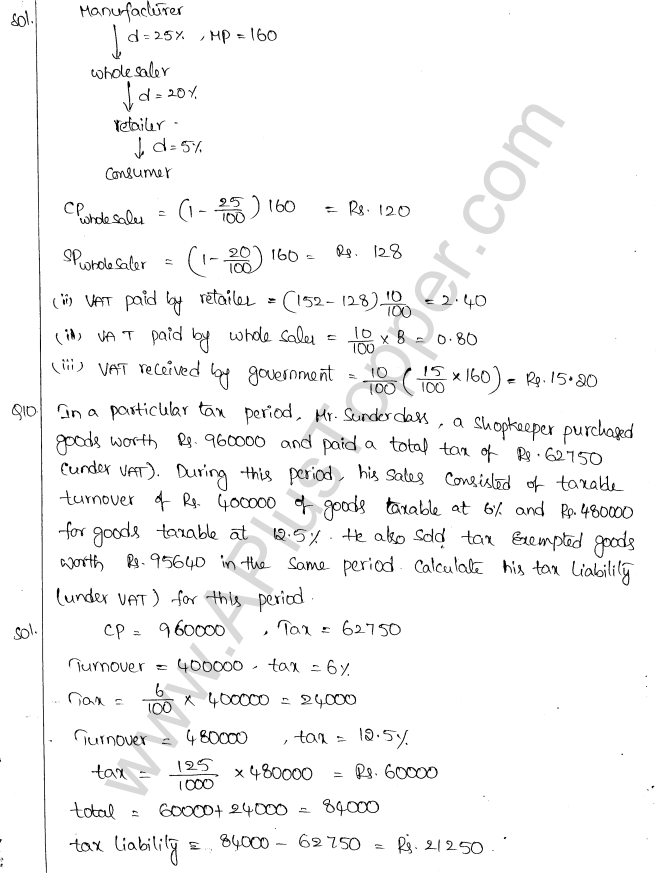 Sol. Manufacturer
↓ d=25% , MP=160
wholesaler
↓ d=20%
retailer -
↓ d=5%
Consumer
CP wholesaler = (1 - 25/100) 160 = Rs. 120
SP wholesaler = (1 - 20/100) 160 = Rs. 128
(ii) VAT paid by retailer = (152-128) 10/100 = 2.40
(ii) VAT paid by whole saler = 10/100 × 8 = 0.80
(iii) VAT received by government = 10/100 (15/100 × 160) = Rs. 15.20
Q10. In a particular tax period, Mr. Sunderdass, a shopkeeper purchased
goods worth Rs. 960000 and paid a total tax of Rs. 62750
(under VAT). During this period, his sales consisted of taxable
turnover of Rs. 400000 of goods taxable at 6% and Rs. 480000
for goods taxable at 12.5%. He also sold tax Exempted goods
worth Rs. 95640 in the same period. Calculate his tax Liability
(under VAT) for this period.
Sol. CP = 960000 , Tax = 62750
Turnover = 400000 - tax = 6%
Tax = 6/100 × 400000 = 24000
Turnover = 480000 , tax = 12.5%
tax = 125/1000 × 480000 = Rs. 60000
total = 60000+24000 = 84000
tax liability = 84000 - 62750 = Rs. 21250.
www.APlusTopper.com